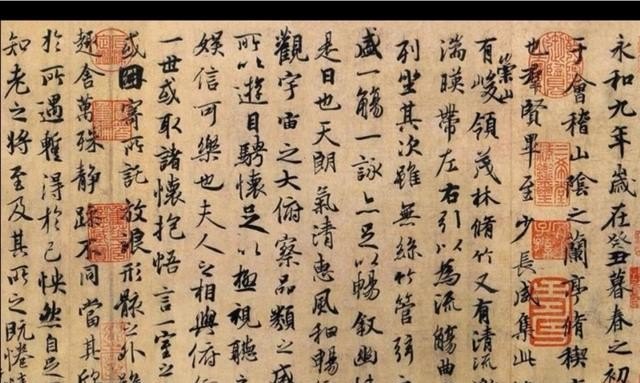 永和九年歲在癸丑暮春之初
于會稽山陰之蘭亭脩稧
也羣賢畢至少長咸集此
有崇山峻領茂林脩竹又有清流
湍暎帶左右引以為流觴曲
列坐其次雖無絲竹管弦
盛一觴一詠亦足以暢敘幽
是日也天朗氣清惠風和暢
觀宇宙之大俯察品類之盛
所以遊目騁懷足以極視聽之
娛信可樂也夫人之相與俯
一世或取諸懷抱悟言一室之
或因寄所託放浪形骸之外雖
趣舍萬殊静躁不同當其欣
於所遇暫得於己怏然自足
知老之將至及其所之既惓情